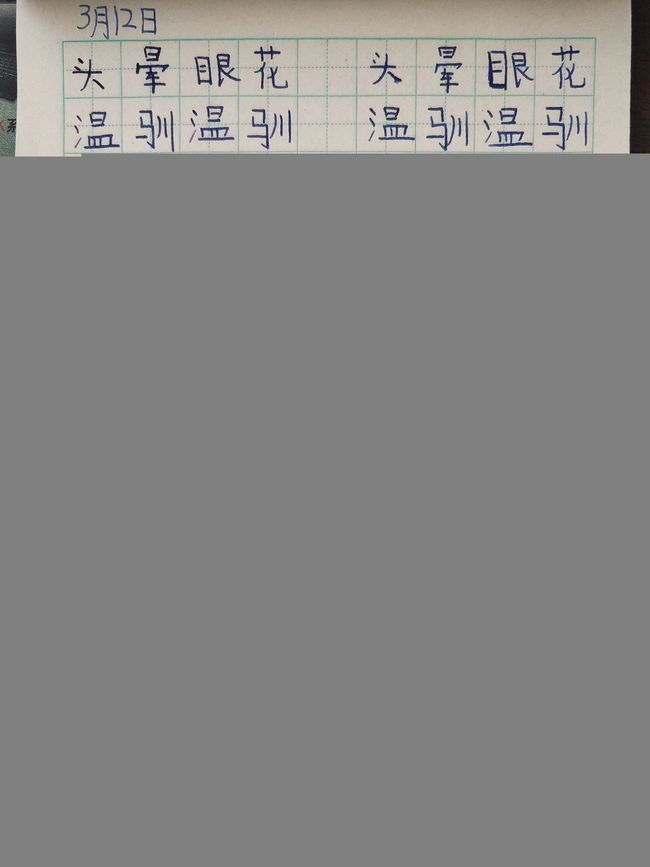 3月12日
头晕眼花 头晕眼花
温驯温驯 温驯温驯